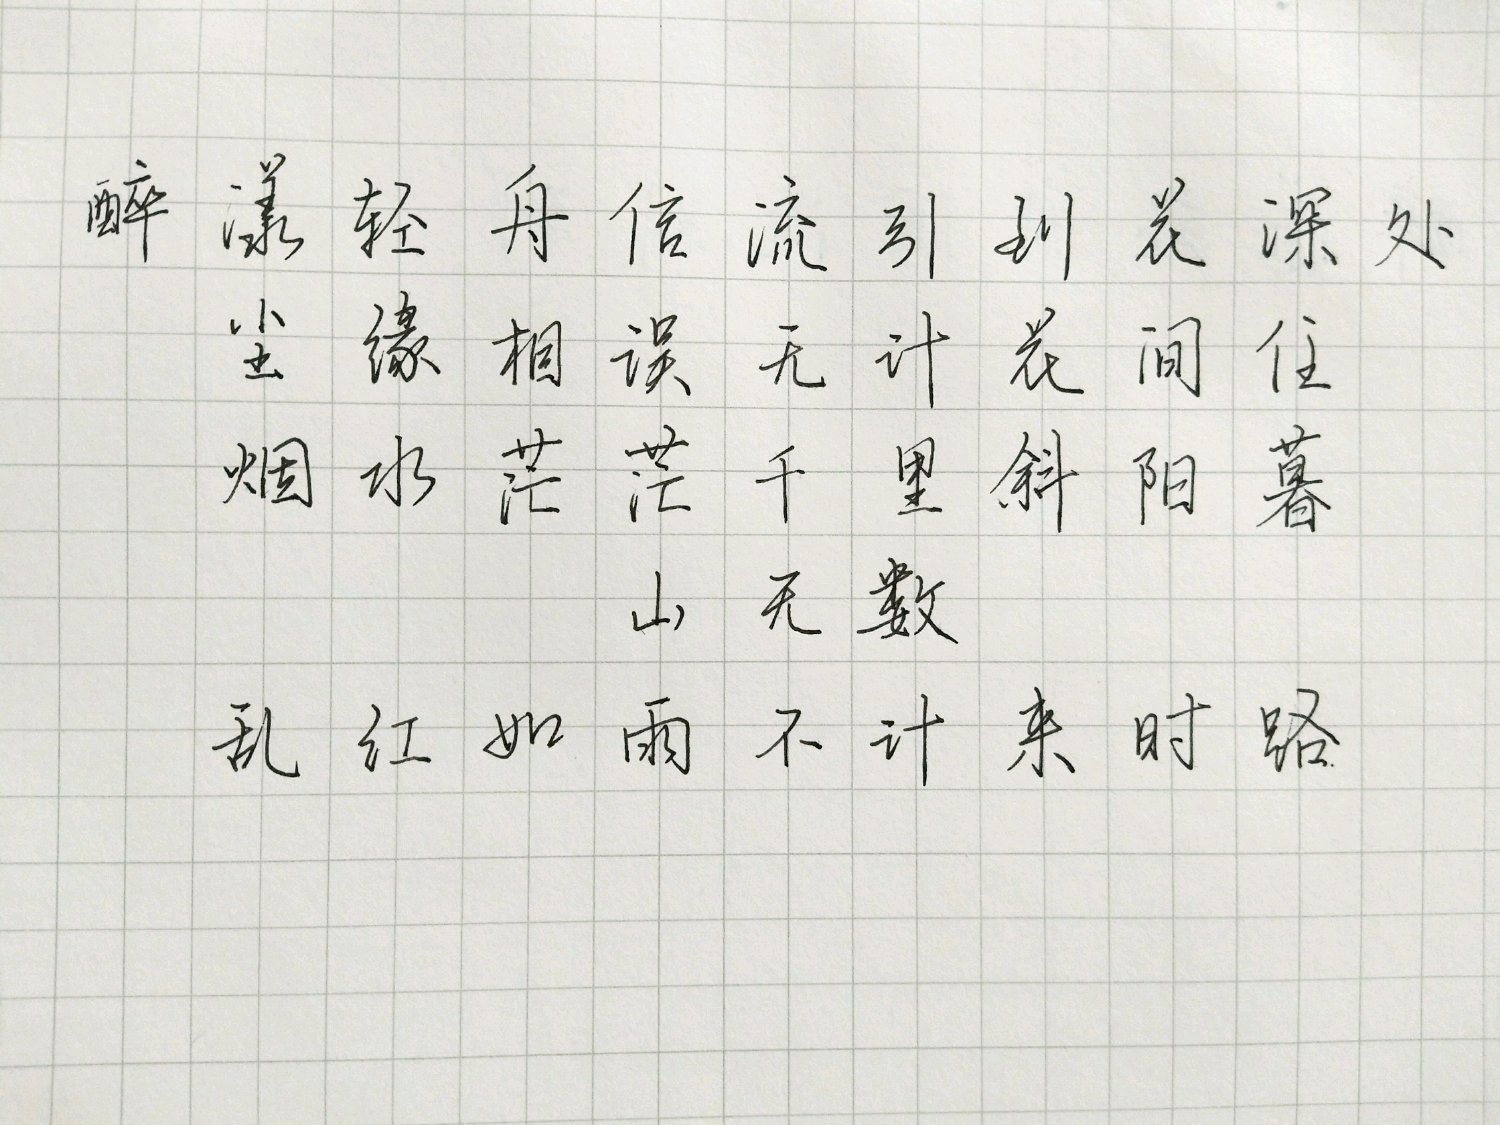 醉漾轻舟信流引到花深处
尘缘相误无计花间住
烟水茫茫千里斜阳暮
山无数
乱红如雨不计来时路